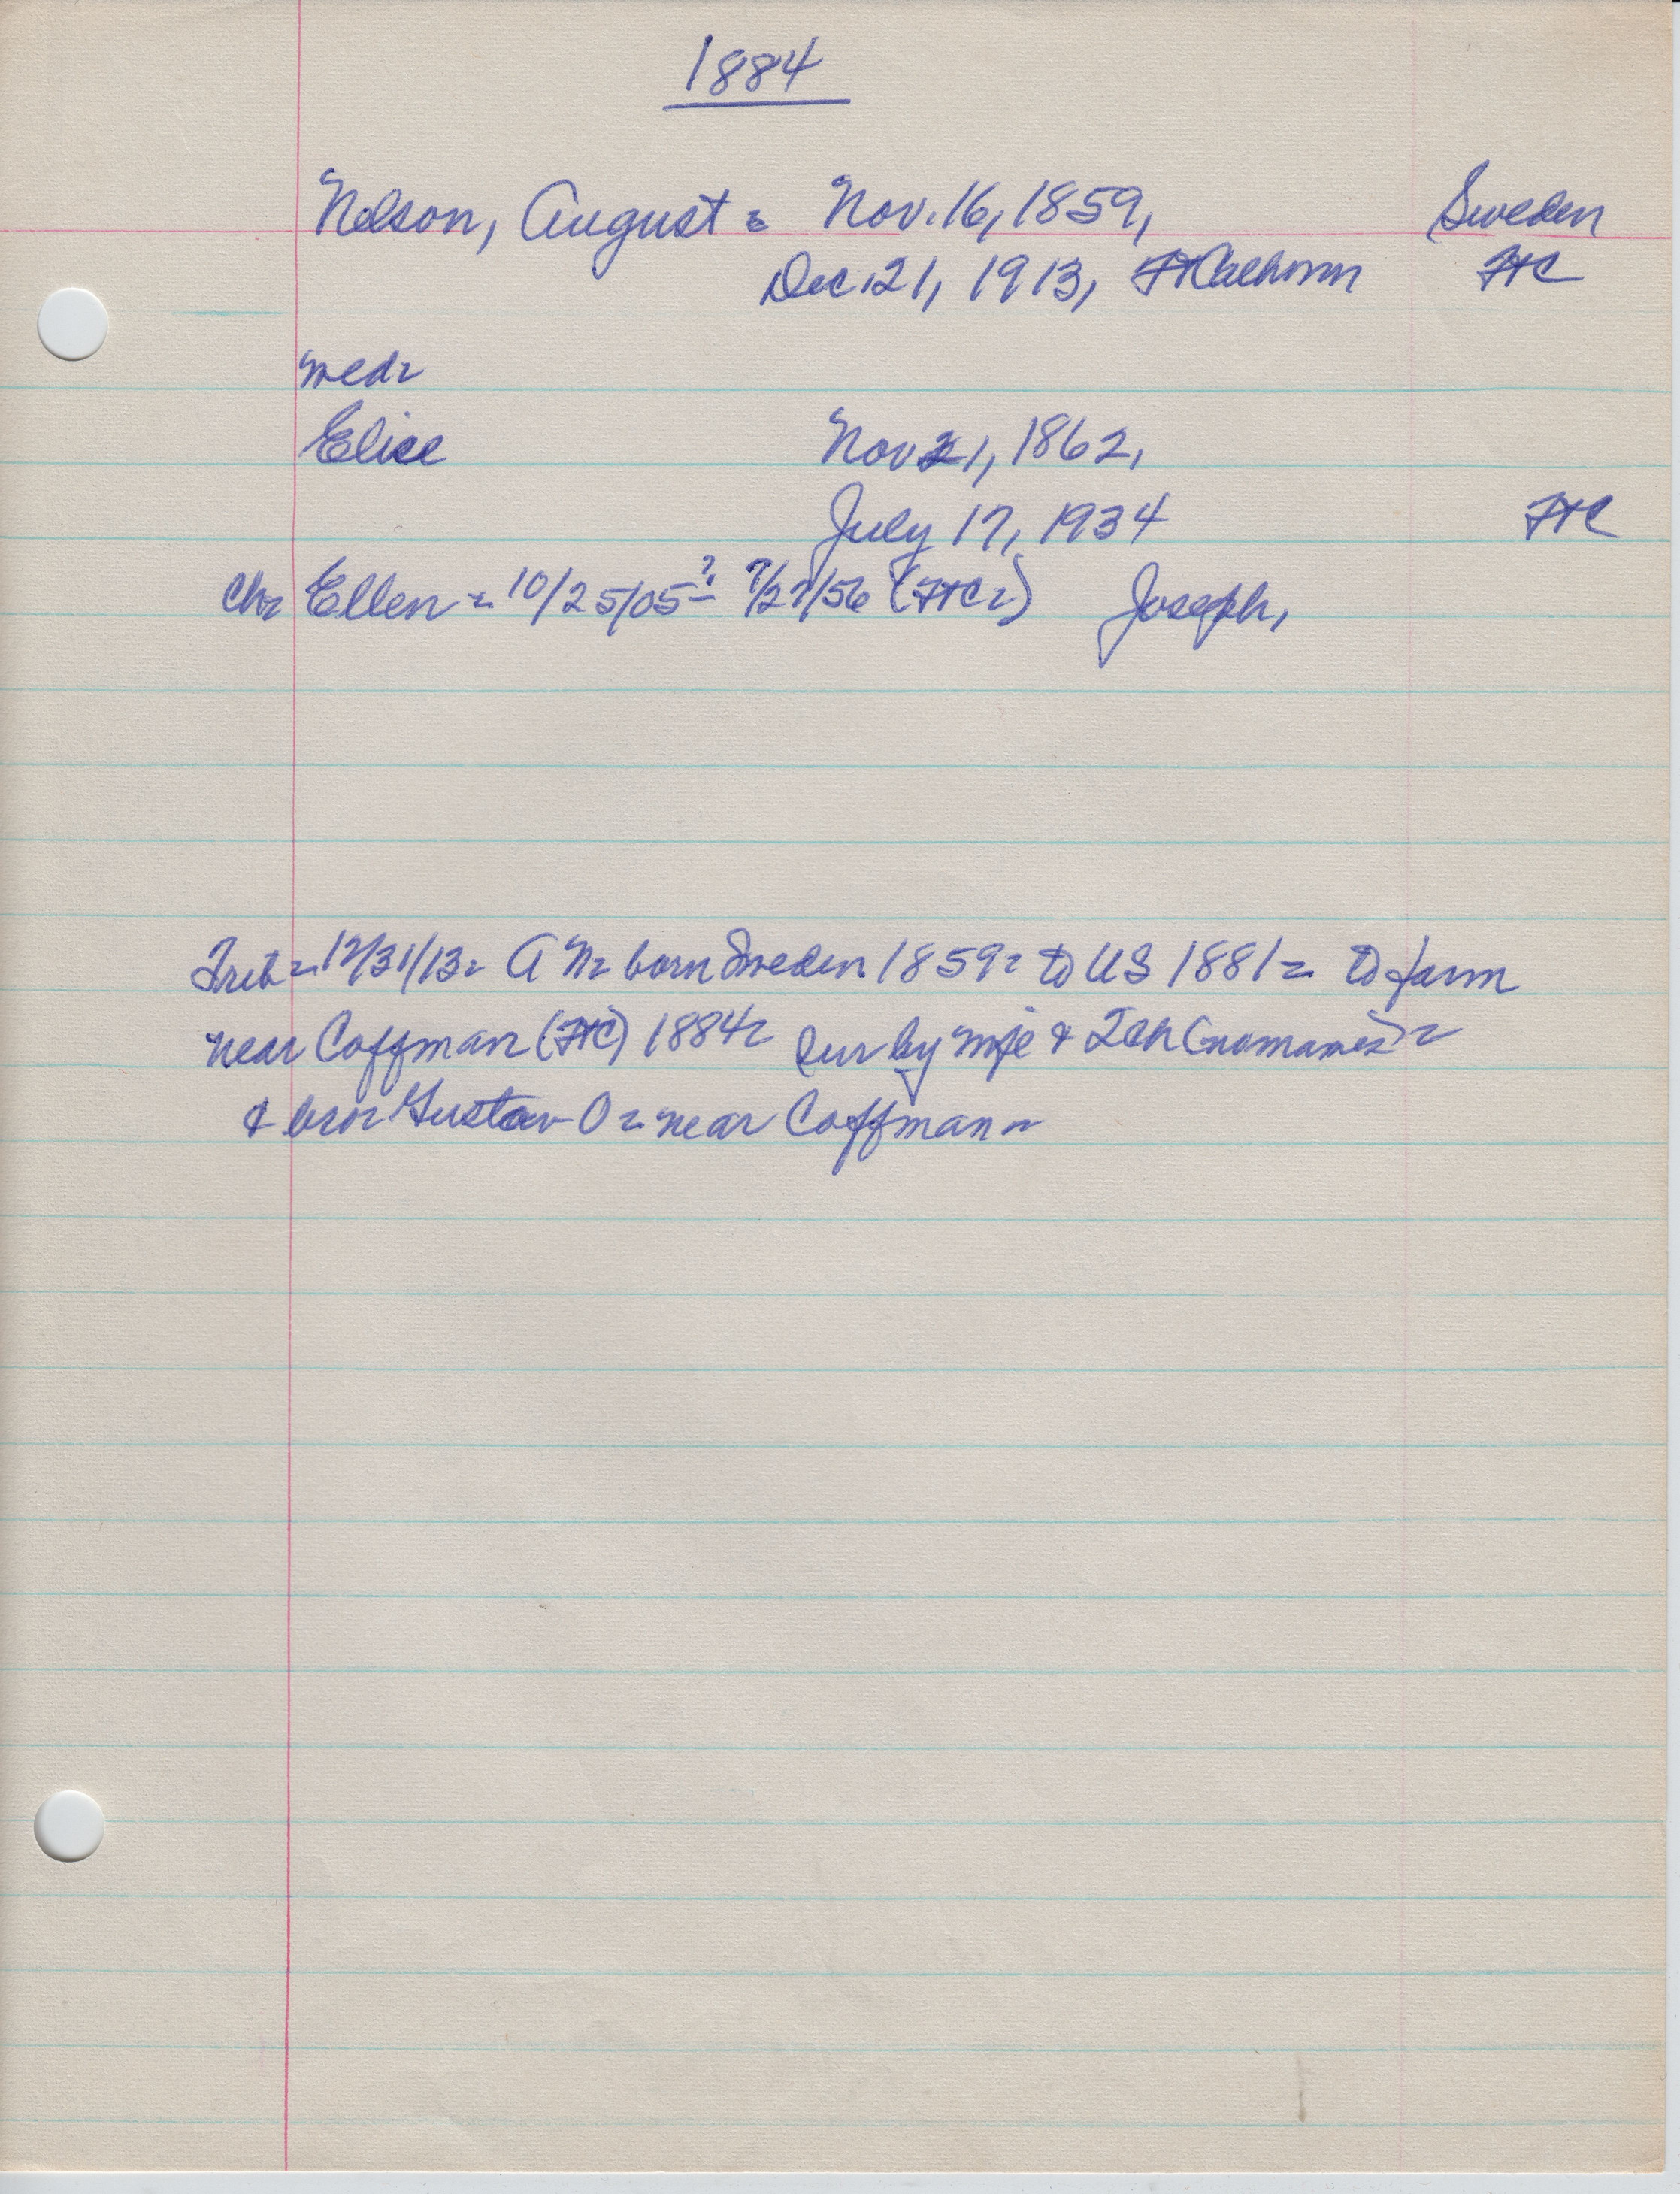 1884
Nelson, August = Nov. 16, 1859, Sweden
Dec. 21, 1913, Ft Calhoun FtC
wed=
Elise Nov 21, 1862,
July 17, 1934 FtC
Ch= Ellen = 10/25/05? - 7/27/56 (FtC=) Joseph,
Trib = 12/31/13 = A N = born Sweden 1859 = to US 1881 = to farm
near Coffman (FtC) 1884 = sur by wife & 2 ch (no names) =
& bro = Gustav O = near Coffman =